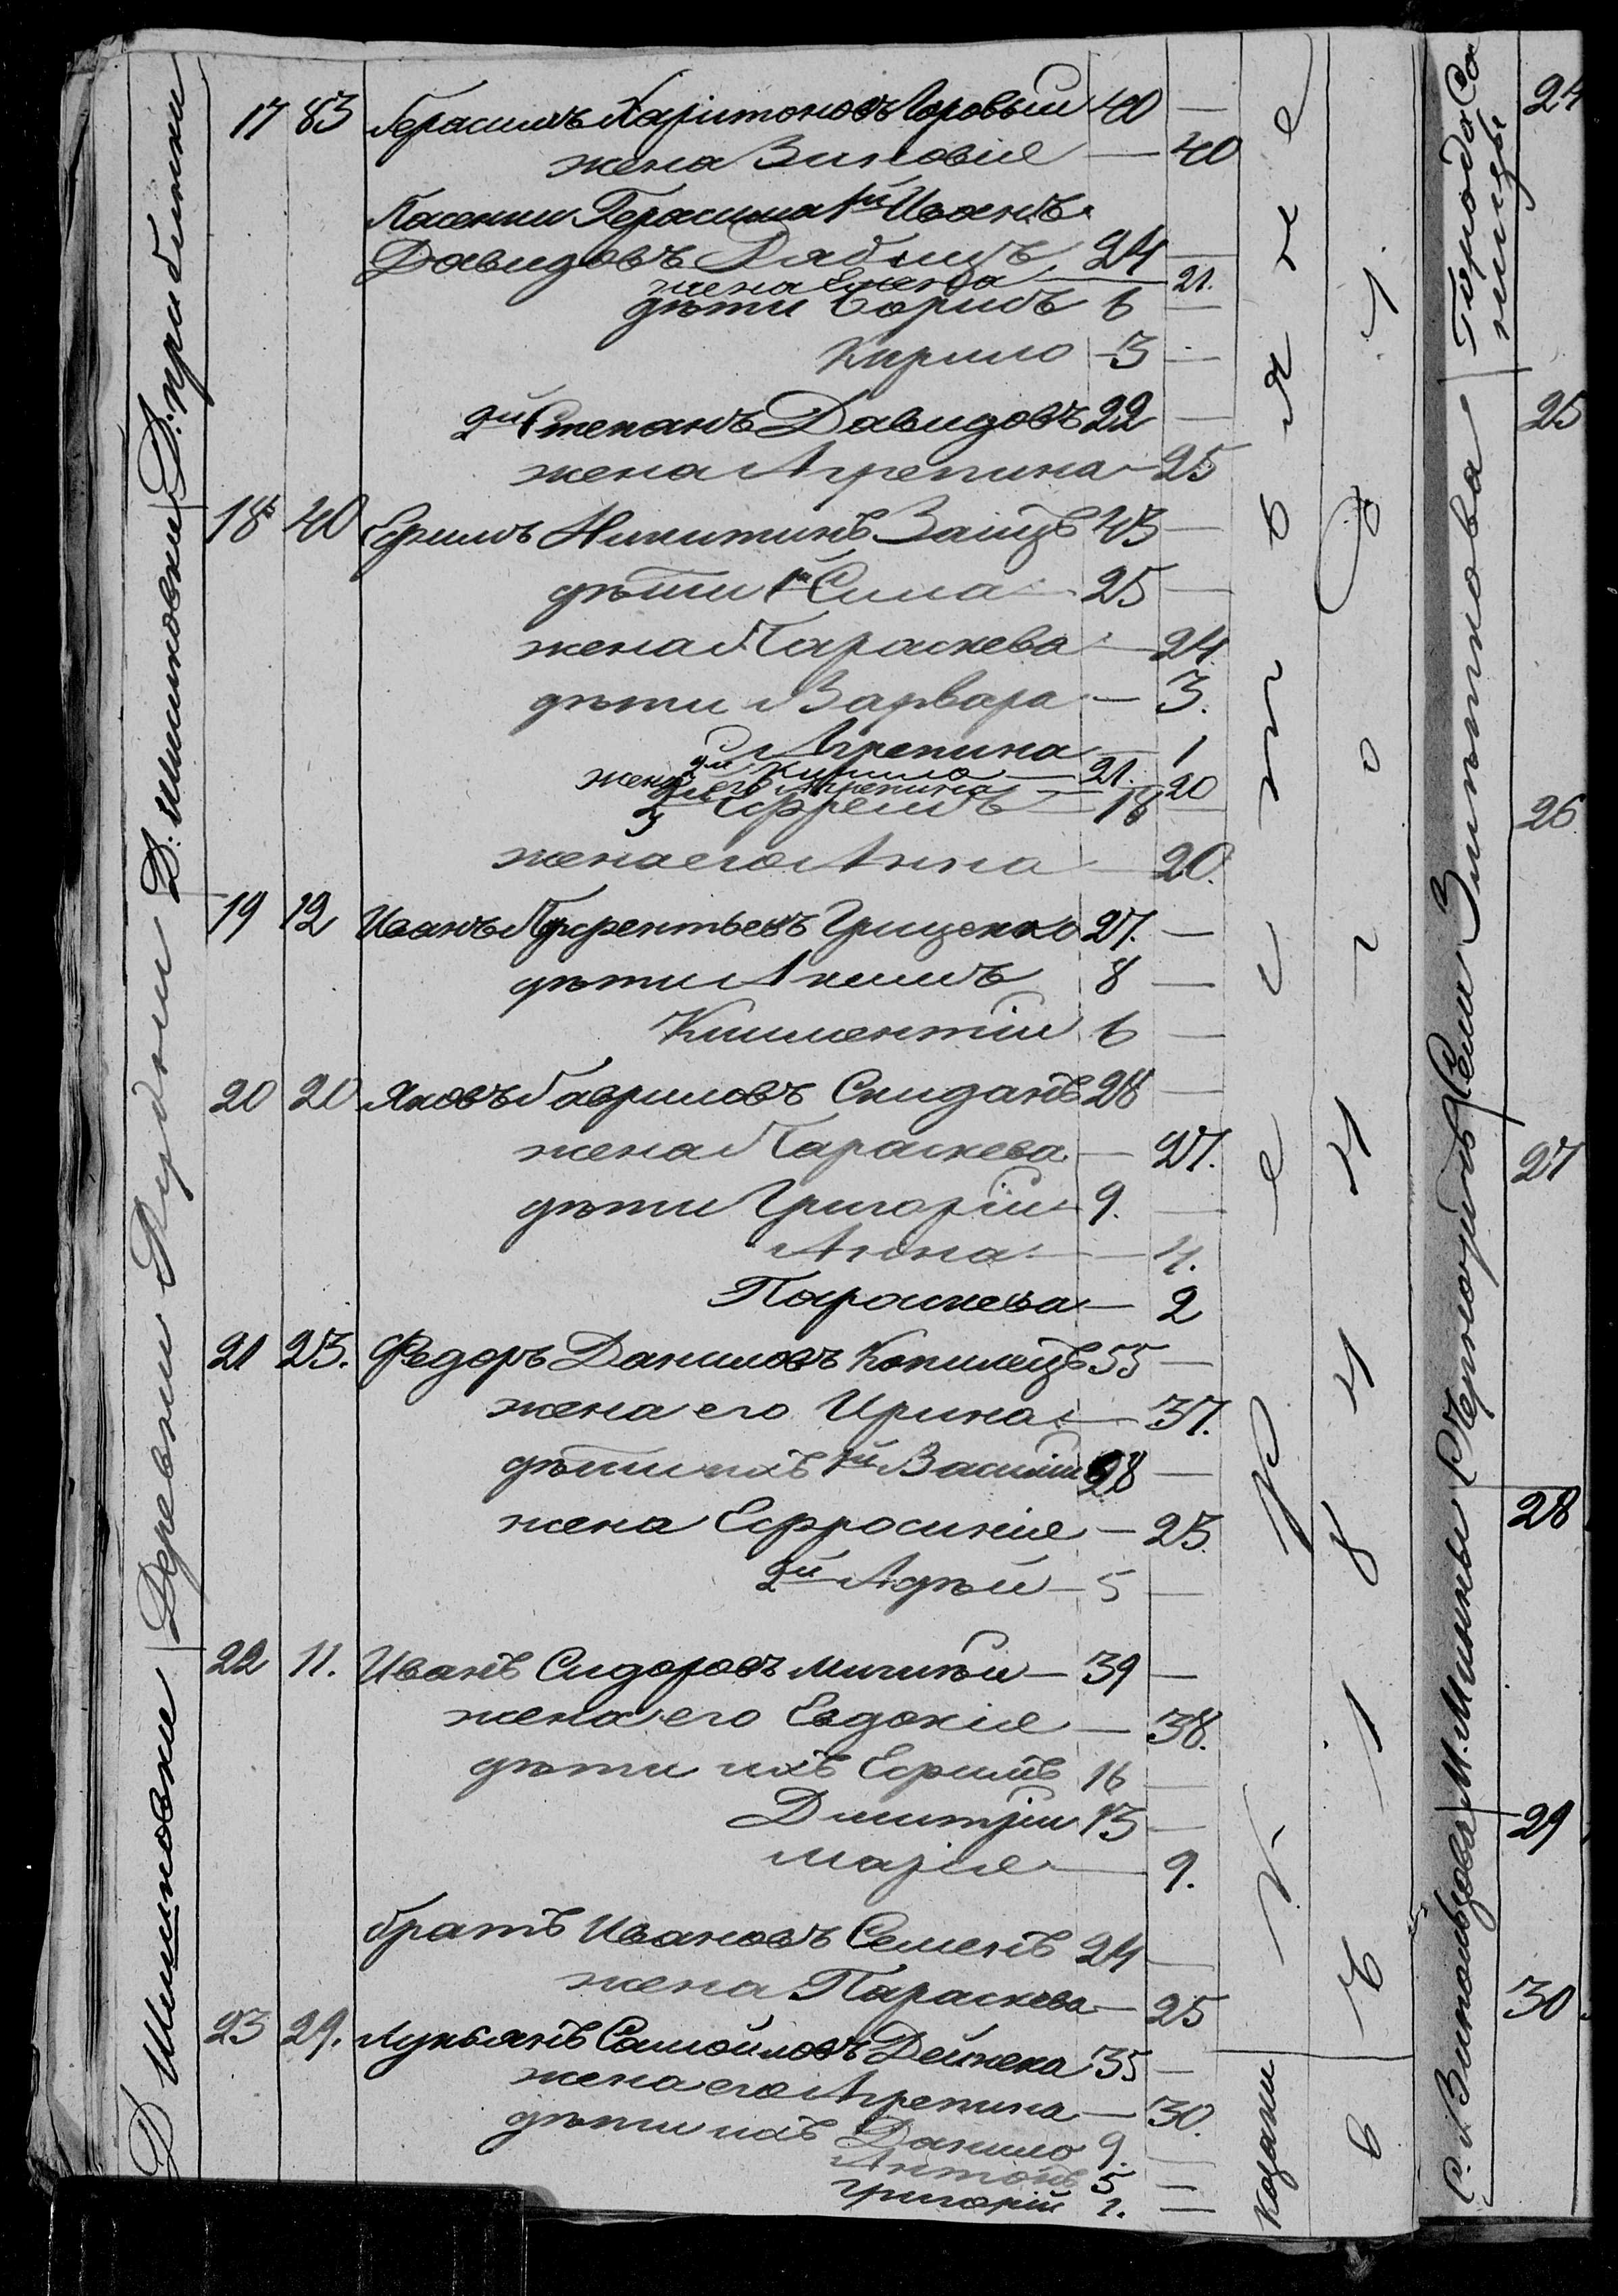 17 83 Герасимъ Харитоновъ Яровый 40 —
жена Зиновія — 40
Пасенки Герасима 1й Иванъ
Давидовъ Рябыхъ 24 —
жена Елена — 21.
дѣти Борисъ 6 —
Кирило 3 —
2й Степанъ Давидовъ 22 —
жена Агрепина — 25
18 40 Ефимъ Никитинъ Заицъ 43 —
дѣти 1й Сила 25 —
жена Параскева — 24
дѣти Варвара — 3.
Агрепина — 1
2й Кирило — 21.
жена его Агрепина — 20
3й Ефремъ 18 —
жена его Анна — 20.
19 12 Иванъ Терентьевъ Грищенко 27. —
дѣти Акимъ 8 —
Климентій 6 —
20 20 Яковъ Гавриловъ Скиданъ 28 —
жена Параскева — 27.
дѣти Григорій 9. —
Анна — 4.
Параскева — 2
21 23. Федоръ Даниловъ Копилецъ 55 —
жена его Ирина — 37.
дѣти ихъ 1й Василій 28 —
жена Ефросинія — 23.
2й — 5 —
22 11. Иванъ Сидоровъ — 39 —
жена его Евдокія — 38.
дѣти ихъ Ефимъ 16 —
Дмитрій 13 —
Марія — 9.
братъ Ивановъ Семенъ 24 —
жена Параскева — 25
23 29. Лукьянъ Самойловъ Дейнека 35 —
жена его Агрепина — 30.
дѣти ихъ Данило 9. —
Антонъ 5 —
Григорій 1. —
Д. Шишковки
Деревни Рудки
Д. Шишковки
Крестьяне
казаки
в ъ 1 8 4 4 г о д
Города Со
ницы
Зинькова
24
25
26
27
28
29
30